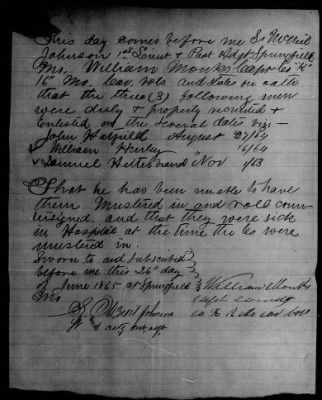 This day comes before me S. McNeil
Johnson 1st Lieut & Post Adjt Springfield
Mo. William Monks Capt Co "K"
Mo. Cav. vols and states on oath
that the three (3) following men
were duly & properly recruited &
Enlisted on the several dates viz;—
John Hatfield August 27/64
William Hurley 16/64
Samuel Hilterbrand Nov 1/63
That he has been unable to have
them Mustered in and roll coun-
tersigned, and that they were sick
in Hospital at the time the Co were
mustered in.
Sworn to and Subscribed
before me this 26th day
of June 1865 at Springfield William Monks
Mo. Capt Comdg
S. McNeil Johnson Co K Mo cav vols